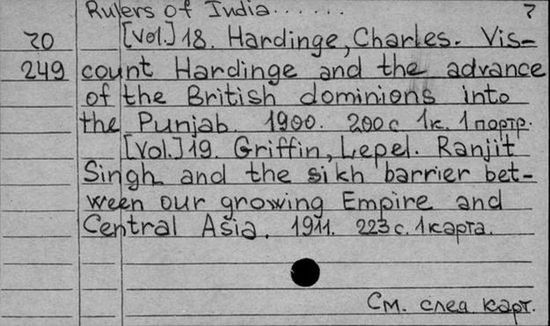 Rulers of India...... 7
20 [Vol.] 18. Hardinge, Charles. Vis-
249 count Hardinge and the advance
of the British dominions into
the Punjab. 1900. 200 с 1к. 1 портр.
[Vol.] 19. Griffin, Lepel. Ranjit
Singh and the sikh barrier bet-
ween our growing Empire and
Central Asia. 1911. 223 с. 1 карта.
См. след карт.